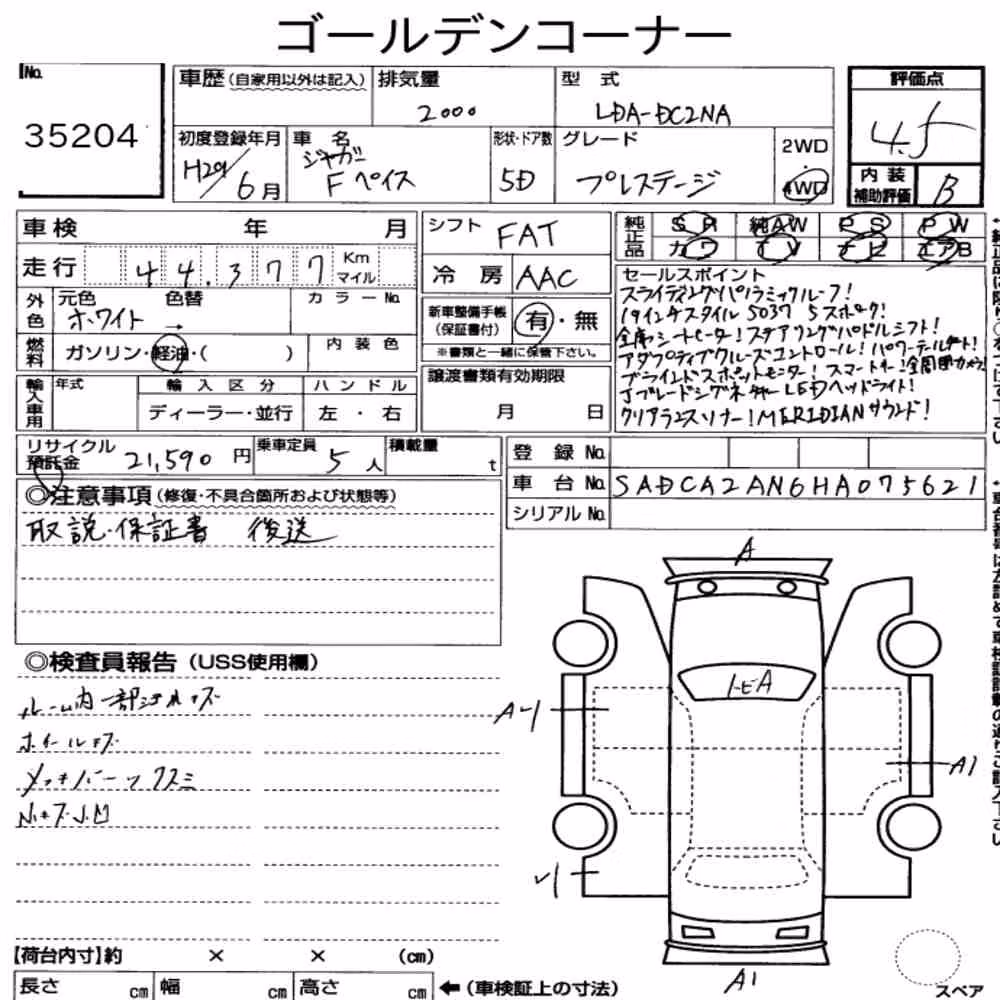 ゴールデンコーナー
No.
35204
車歴(自家用以外は記入)
排気量
2000
型 式
LDA-DC2NA
評価点
4.5
初度登録年月
H29/6月
車 名
ジャガー
Fペイス
形状・ドア数
5D
グレード
プレステージ
2WD
4WD
内装補助評価
B
車検 年 月
走行 44,377 Km マイル
シフト FAT
冷 房 AAC
純正品 SR 純AW PS PW
カワ TV ナビ エアB
外色 元色 色替
ホワイト →
カラーNo.
燃料 ガソリン・軽油・( )
内 装 色
新車整備手帳(保証書付) 有・無
※書類と一緒に保管下さい。
セールスポイント
スライディングパノラミックルーフ!
19インチスタイル5037 5スポーク!
全席シートヒーター!ステアリングパドルシフト!
アダプティブクルーズコントロール!パワーテールゲート!
ブラインドスポットモニター!スマートキー!全周囲カメラ!
JブレードシグネチャーLEDヘッドライト!
クリアランスソナー!MERIDIANサウンド!
輸入車用 年式 輸入区分 ハンドル
ディーラー・並行 左・右
譲渡書類有効期限
月 日
リサイクル預託金 21,590円
乗車定員 5人
積載量 t
登 録 No.
車 台 No. SADCA2AN6HA075621
シリアル No.
◎注意事項(修復・不具合箇所および状態等)
取説・保証書 後送
◎検査員報告(USS使用欄)
ルーム内一部シミスレキズ
ホイールキズ
メッキパーツクスミ
小キズ小凹
A
トビA
A-1
A1
A1
【荷台内寸】約 × × (cm)
長さ cm 幅 cm 高さ cm
←(車検証上の寸法)
スペア